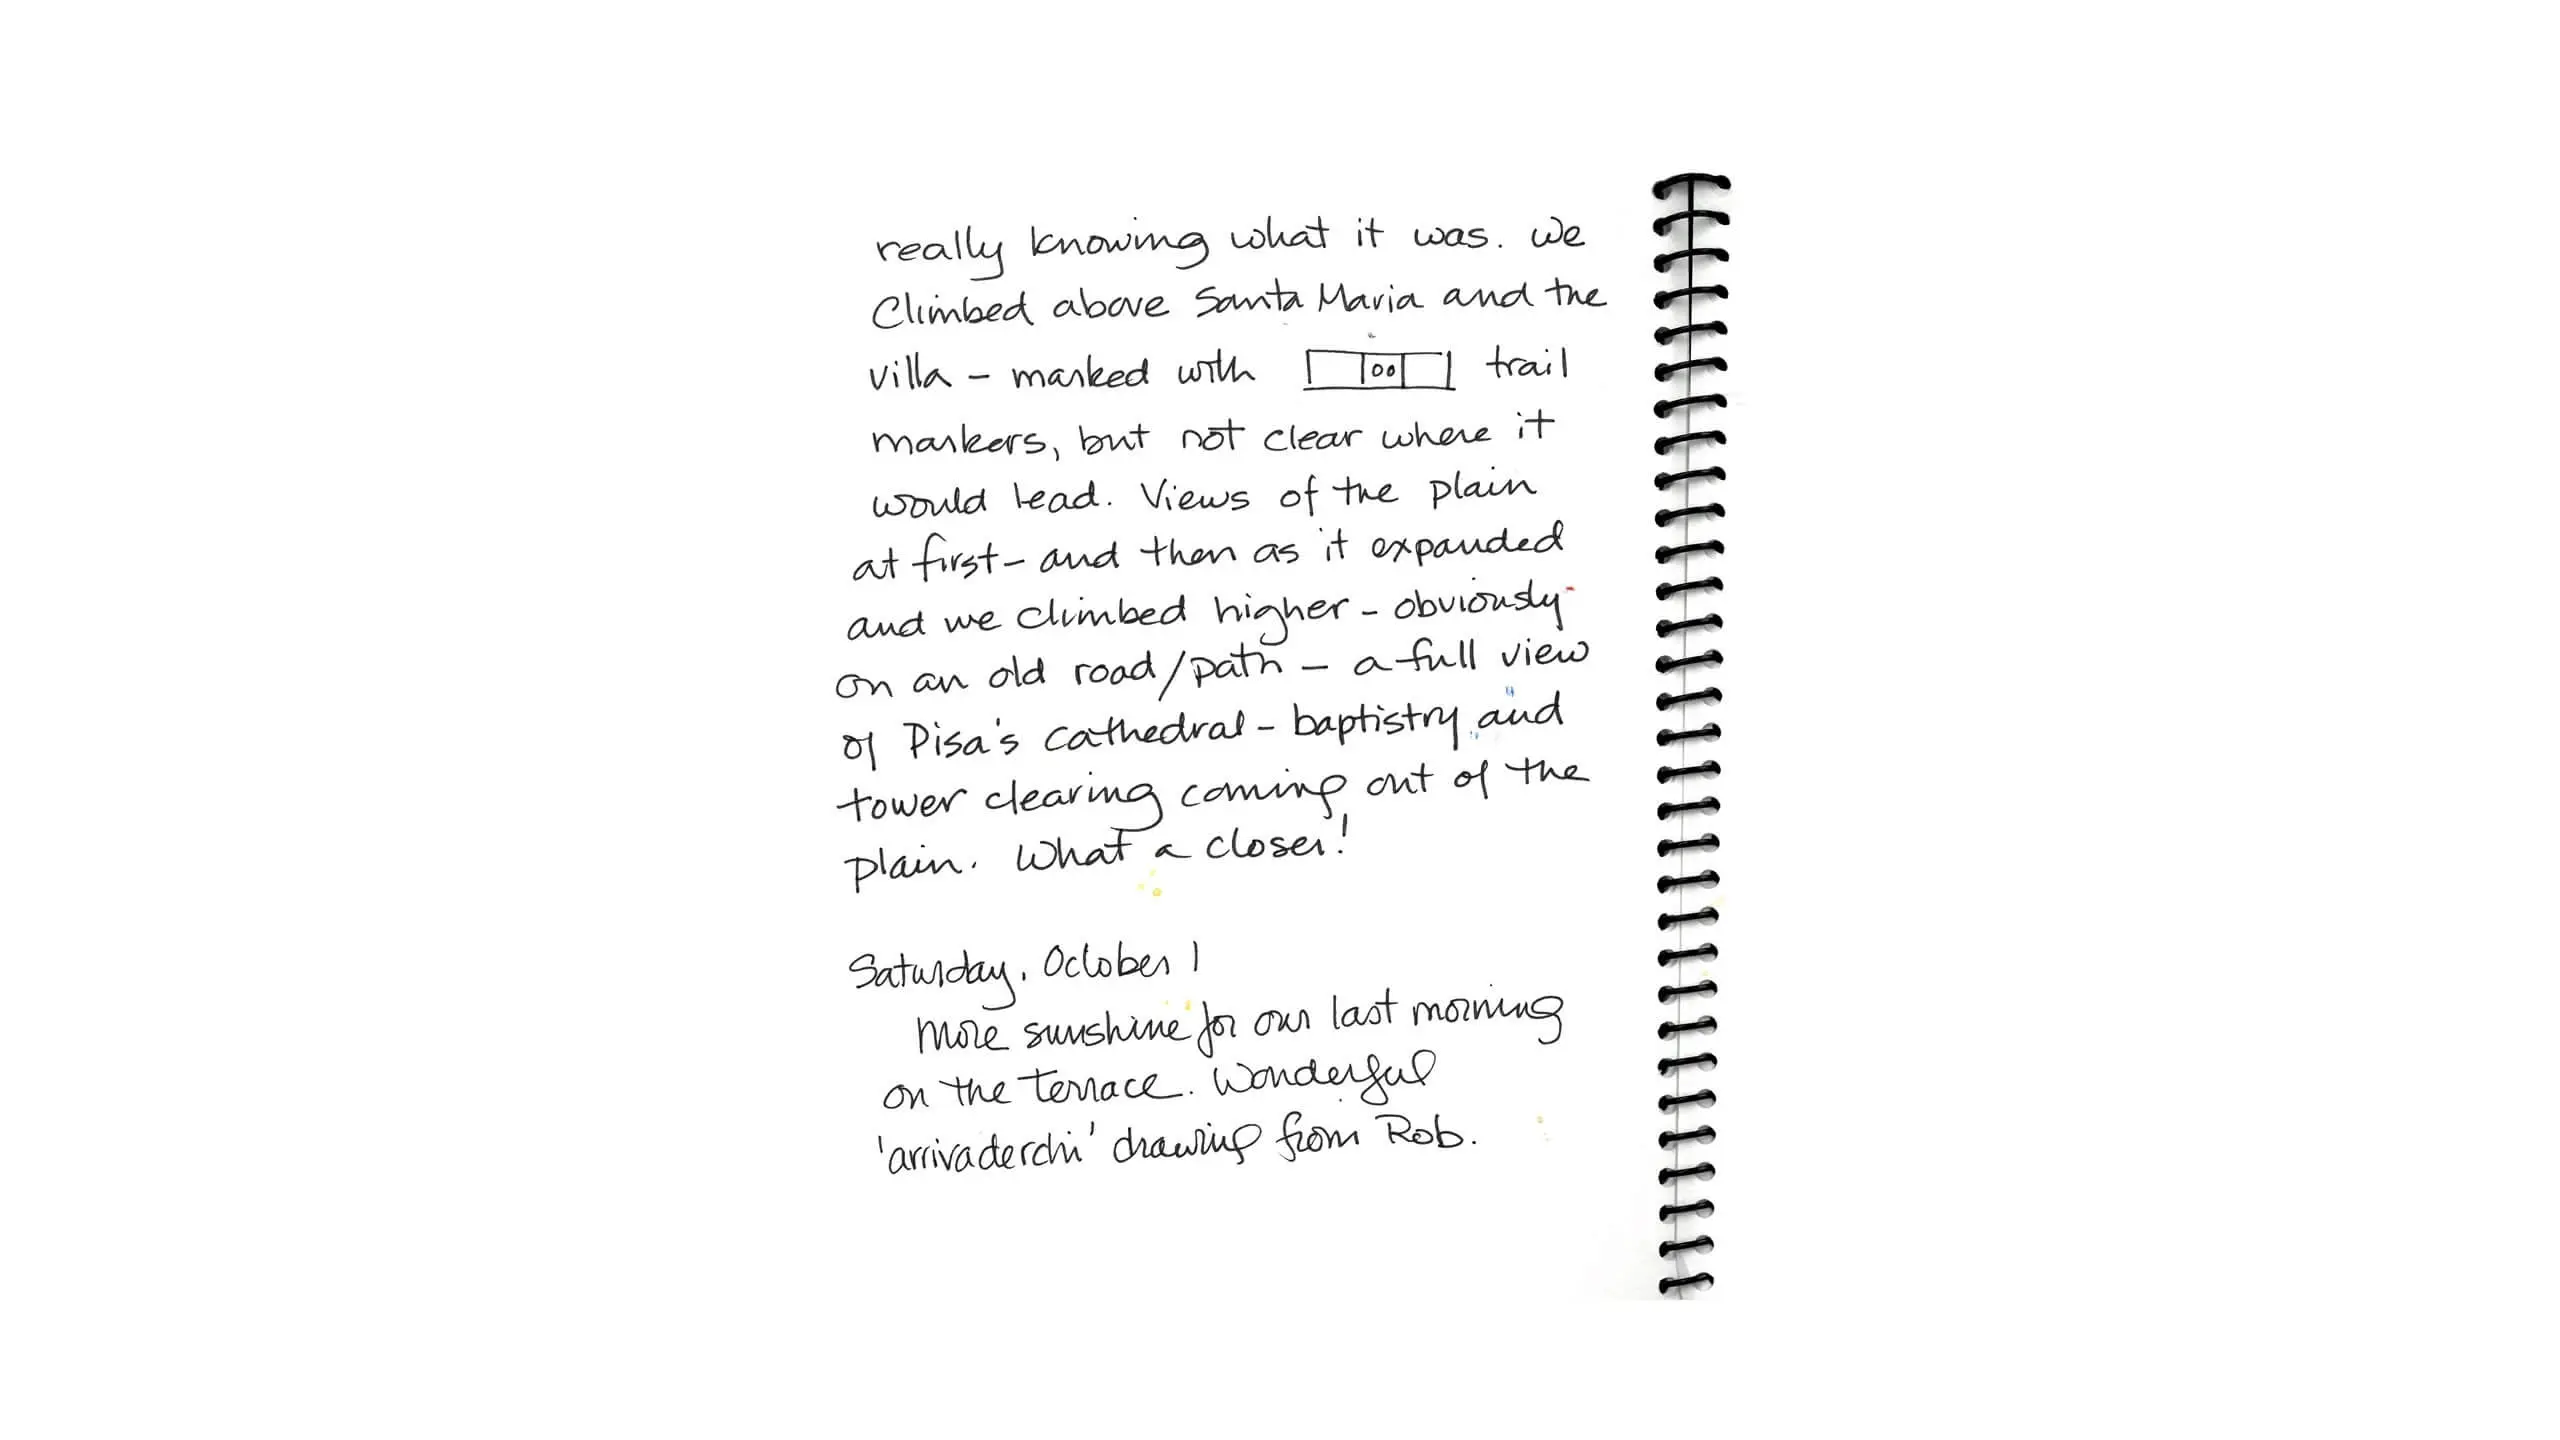 really knowing what it was. We
Climbed above Santa Maria and the
villa – marked with 00 trail
markers, but not clear where it
would lead. Views of the plain
at first – and then as it expanded
and we climbed higher – obviously
on an old road/path – a full view
of Pisa's cathedral – baptistry and
tower clearing coming out of the
plain. What a closer!
Saturday, October 1
More sunshine for our last morning
on the terrace. Wonderful
'arrivaderchi' drawing from Rob.